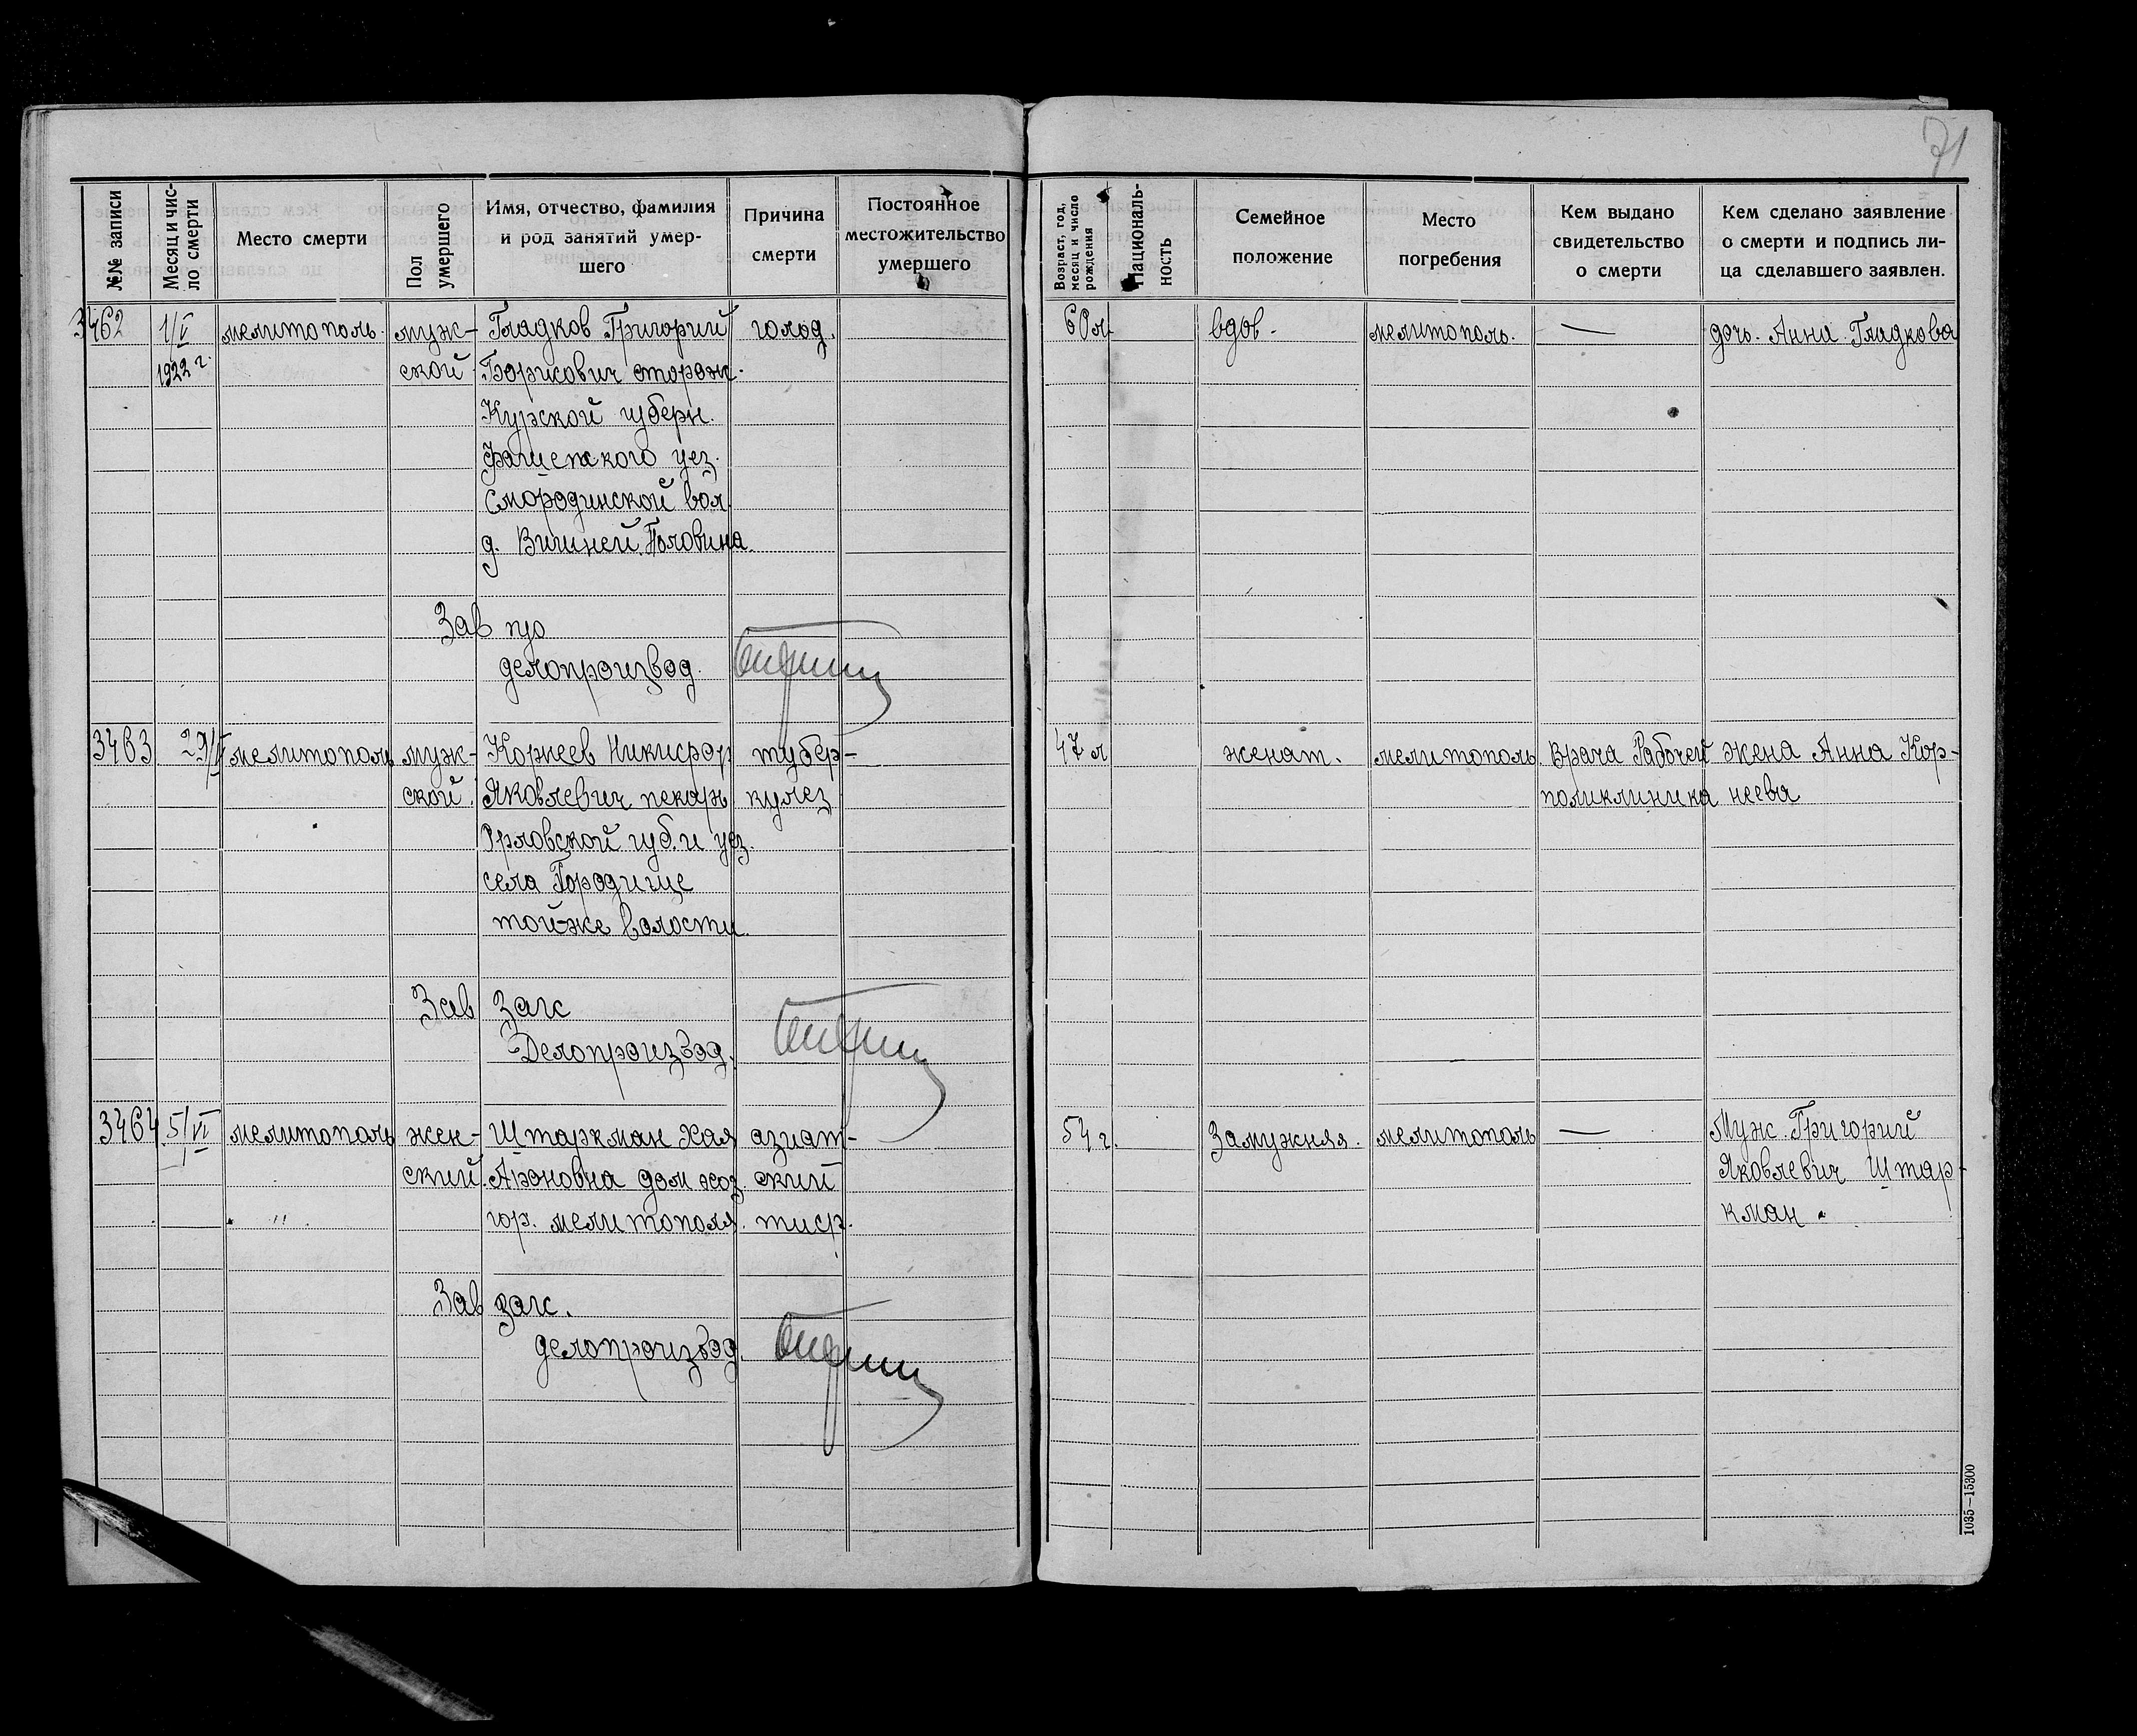 71
№№ записи
Месяц и чис-
ло смерти
Место смерти
Пол
умершего
Имя, отчество, фамилия
и род занятий умер-
шего
Причина
смерти
Постоянное
местожительство
умершего
Возраст, год,
месяц и число
рождения
Националь-
ность
Семейное
положение
Место
погребения
Кем выдано
свидетельство
о смерти
Кем сделано заявление
о смерти и подпись ли-
ца сделавшего заявлен.
3462 1/V мелитополь. муж- Гладков Григорий голод. 60 л. вдов. мелитополь. — дочь. Анна Гладкова
1922 г. ской Борисович сторож.
Курской губерн.
уез.
Смородинской вол.
д. Половина.
Зав
делопроизвод.
3463 мелитополь муж- Корнеев Никифор тубер- 47 л женат. мелитополь. Врача Рабочей жена Анна Кор-
ской. Яковлевич пекарь кулез поликлиника неева
Орловской губ. и уез.
села Городище
той-же волости.
Зав загс
Делопроизвод.
3464 5/VI мелитополь жен- Штаркман Хая азиат- 54 г. Замужняя. мелитополь — Муж Григорий
ский. Ароновна дом хоз. ский Яковлевич Штар-
" гор. мелитополя. тиф. кман.
Зав загс.
делопроизвод.
1035—15300